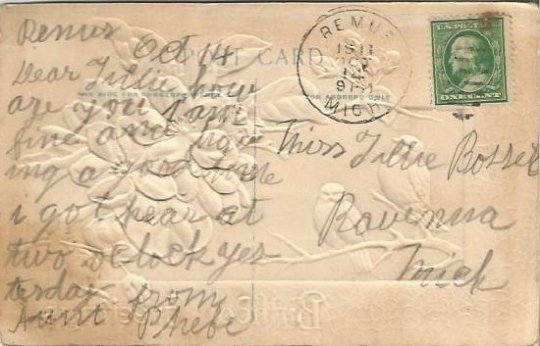 Remus
Oct 14
Dear Tillie how
are you I am
fine and
ing a good time
i got hear at
two oclock yes
terday from
Aunt Phebe
POST CARD
FOR ADDRESS ONLY
REMUS
1911
OCT
14
9 AM
MICH
U.S. POSTAGE
ONE CENT
Miss Tillie
Ravenna
Mich